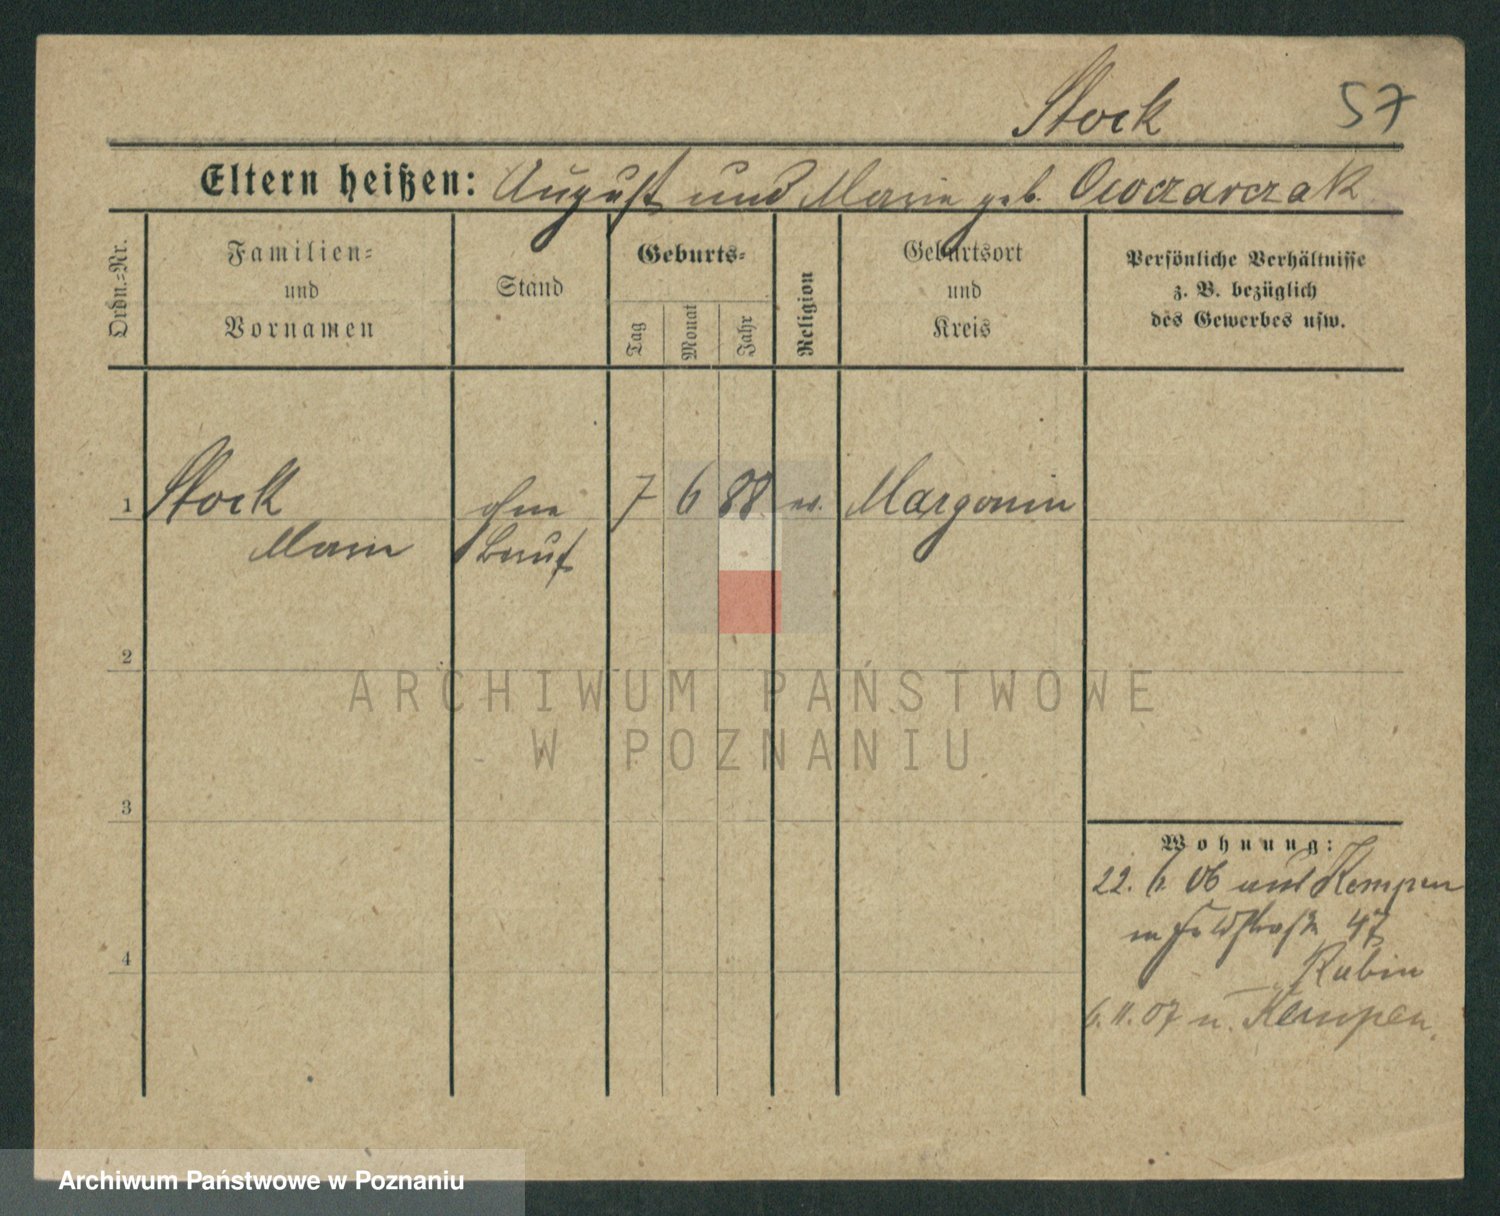 Stock 57
Eltern heißen: August und Marie geb. Owczarczak
Ordn.-Nr.
Familien-
und
Vornamen
Stand
Geburts-
Tag
Monat
Jahr
Religion
Geburtsort
und
Kreis
Persönliche Verhältnisse
z. B. bezüglich
des Gewerbes usw.
1 Stock ohne 7 6 88 ev. Margonin
Marie Beruf
2
ARCHIWUM PAŃSTWOWE
W POZNANIU
3
Wohnung:
22. 6 06 aus Kempen
n Feldstraße 47
Rubin
4
6. 11. 07 n. Kempen.
Archiwum Państwowe w Poznaniu